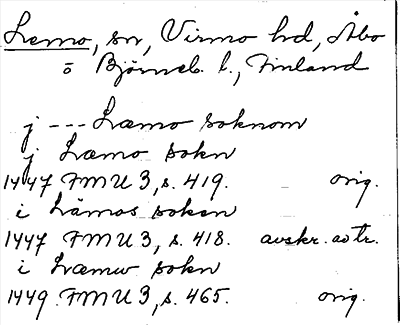 Lemo, sn, Virmo hd, Åbo
o Björneb. l., Finland
j --- Læmo soknom
j Læmo sokn
1447 FMU 3, s. 419. orig.
i Lämos soken
1447 FMU 3, s. 418. avskr. avtr.
i Læmw sokn
1449 FMU 3, s. 465. orig.